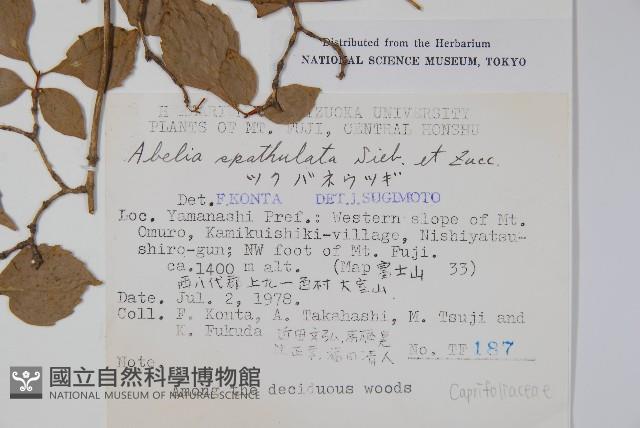 Distributed from the Herbarium
NATIONAL SCIENCE MUSEUM, TOKYO
UNIVERSITY
PLANTS OF MT. FUJI, CENTRAL HONSHU
Abelia spathulata Sieb. et Zucc.
ツクバネウツギ
Det. F. KONTA DET. J. SUGIMOTO
Loc. Yamanashi Pref.: Western slope of Mt.
Omuro, Kamikuishiki-village, Nishiyatsu-
shiro-gun; NW foot of Mt. Fuji.
ca. 1400 m alt. (Map 富士山 33)
西八代郡上九一色村 大室山
Date. Jul. 2, 1978.
Coll. F. Konta, A. Takahashi, M. Tsuji and
K. Fukuda 近田文弘
No. TF 187
Note
Among the deciduous woods
Caprifoliaceae
國立自然科學博物館
NATIONAL MUSEUM OF NATURAL SCIENCE